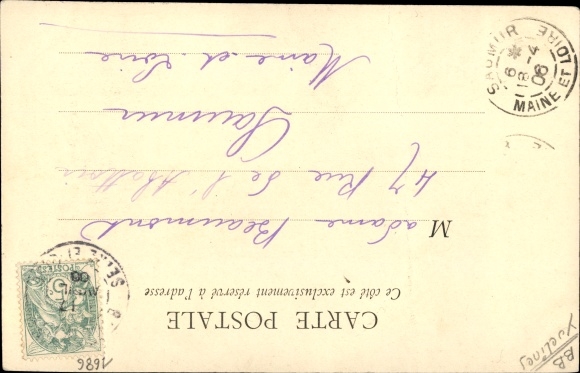 CARTE POSTALE
Ce côté est exclusivement réservé à l'adresse
Madame Beaumont
47 Rue de l'
Saumur
Maine et Loire
SAUMUR
6 *
18 - 4
06
MAINE ET LOIRE
SEINE ET
17
AVRIL
POSTES
5
1686
BB
Yvelines